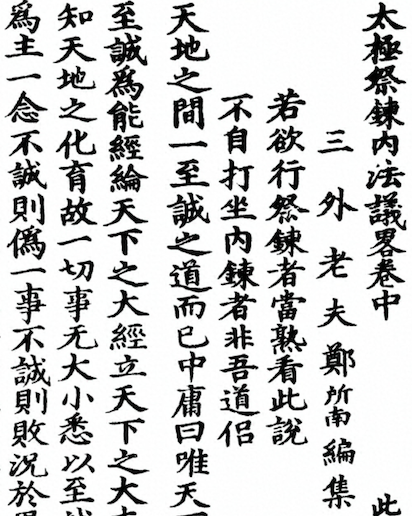 太極祭鍊內法議畧卷中
此
三外老夫鄭所南編集
若欲行祭鍊者當熟看此說
不自打坐內鍊者非吾道侣
天地之間一至誠之道而已中庸曰唯天
至誠為能經綸天下之大經立天下之大
知天地之化育故一切事无大小悉以至
為主一念不誠則僞一事不誠則敗況於